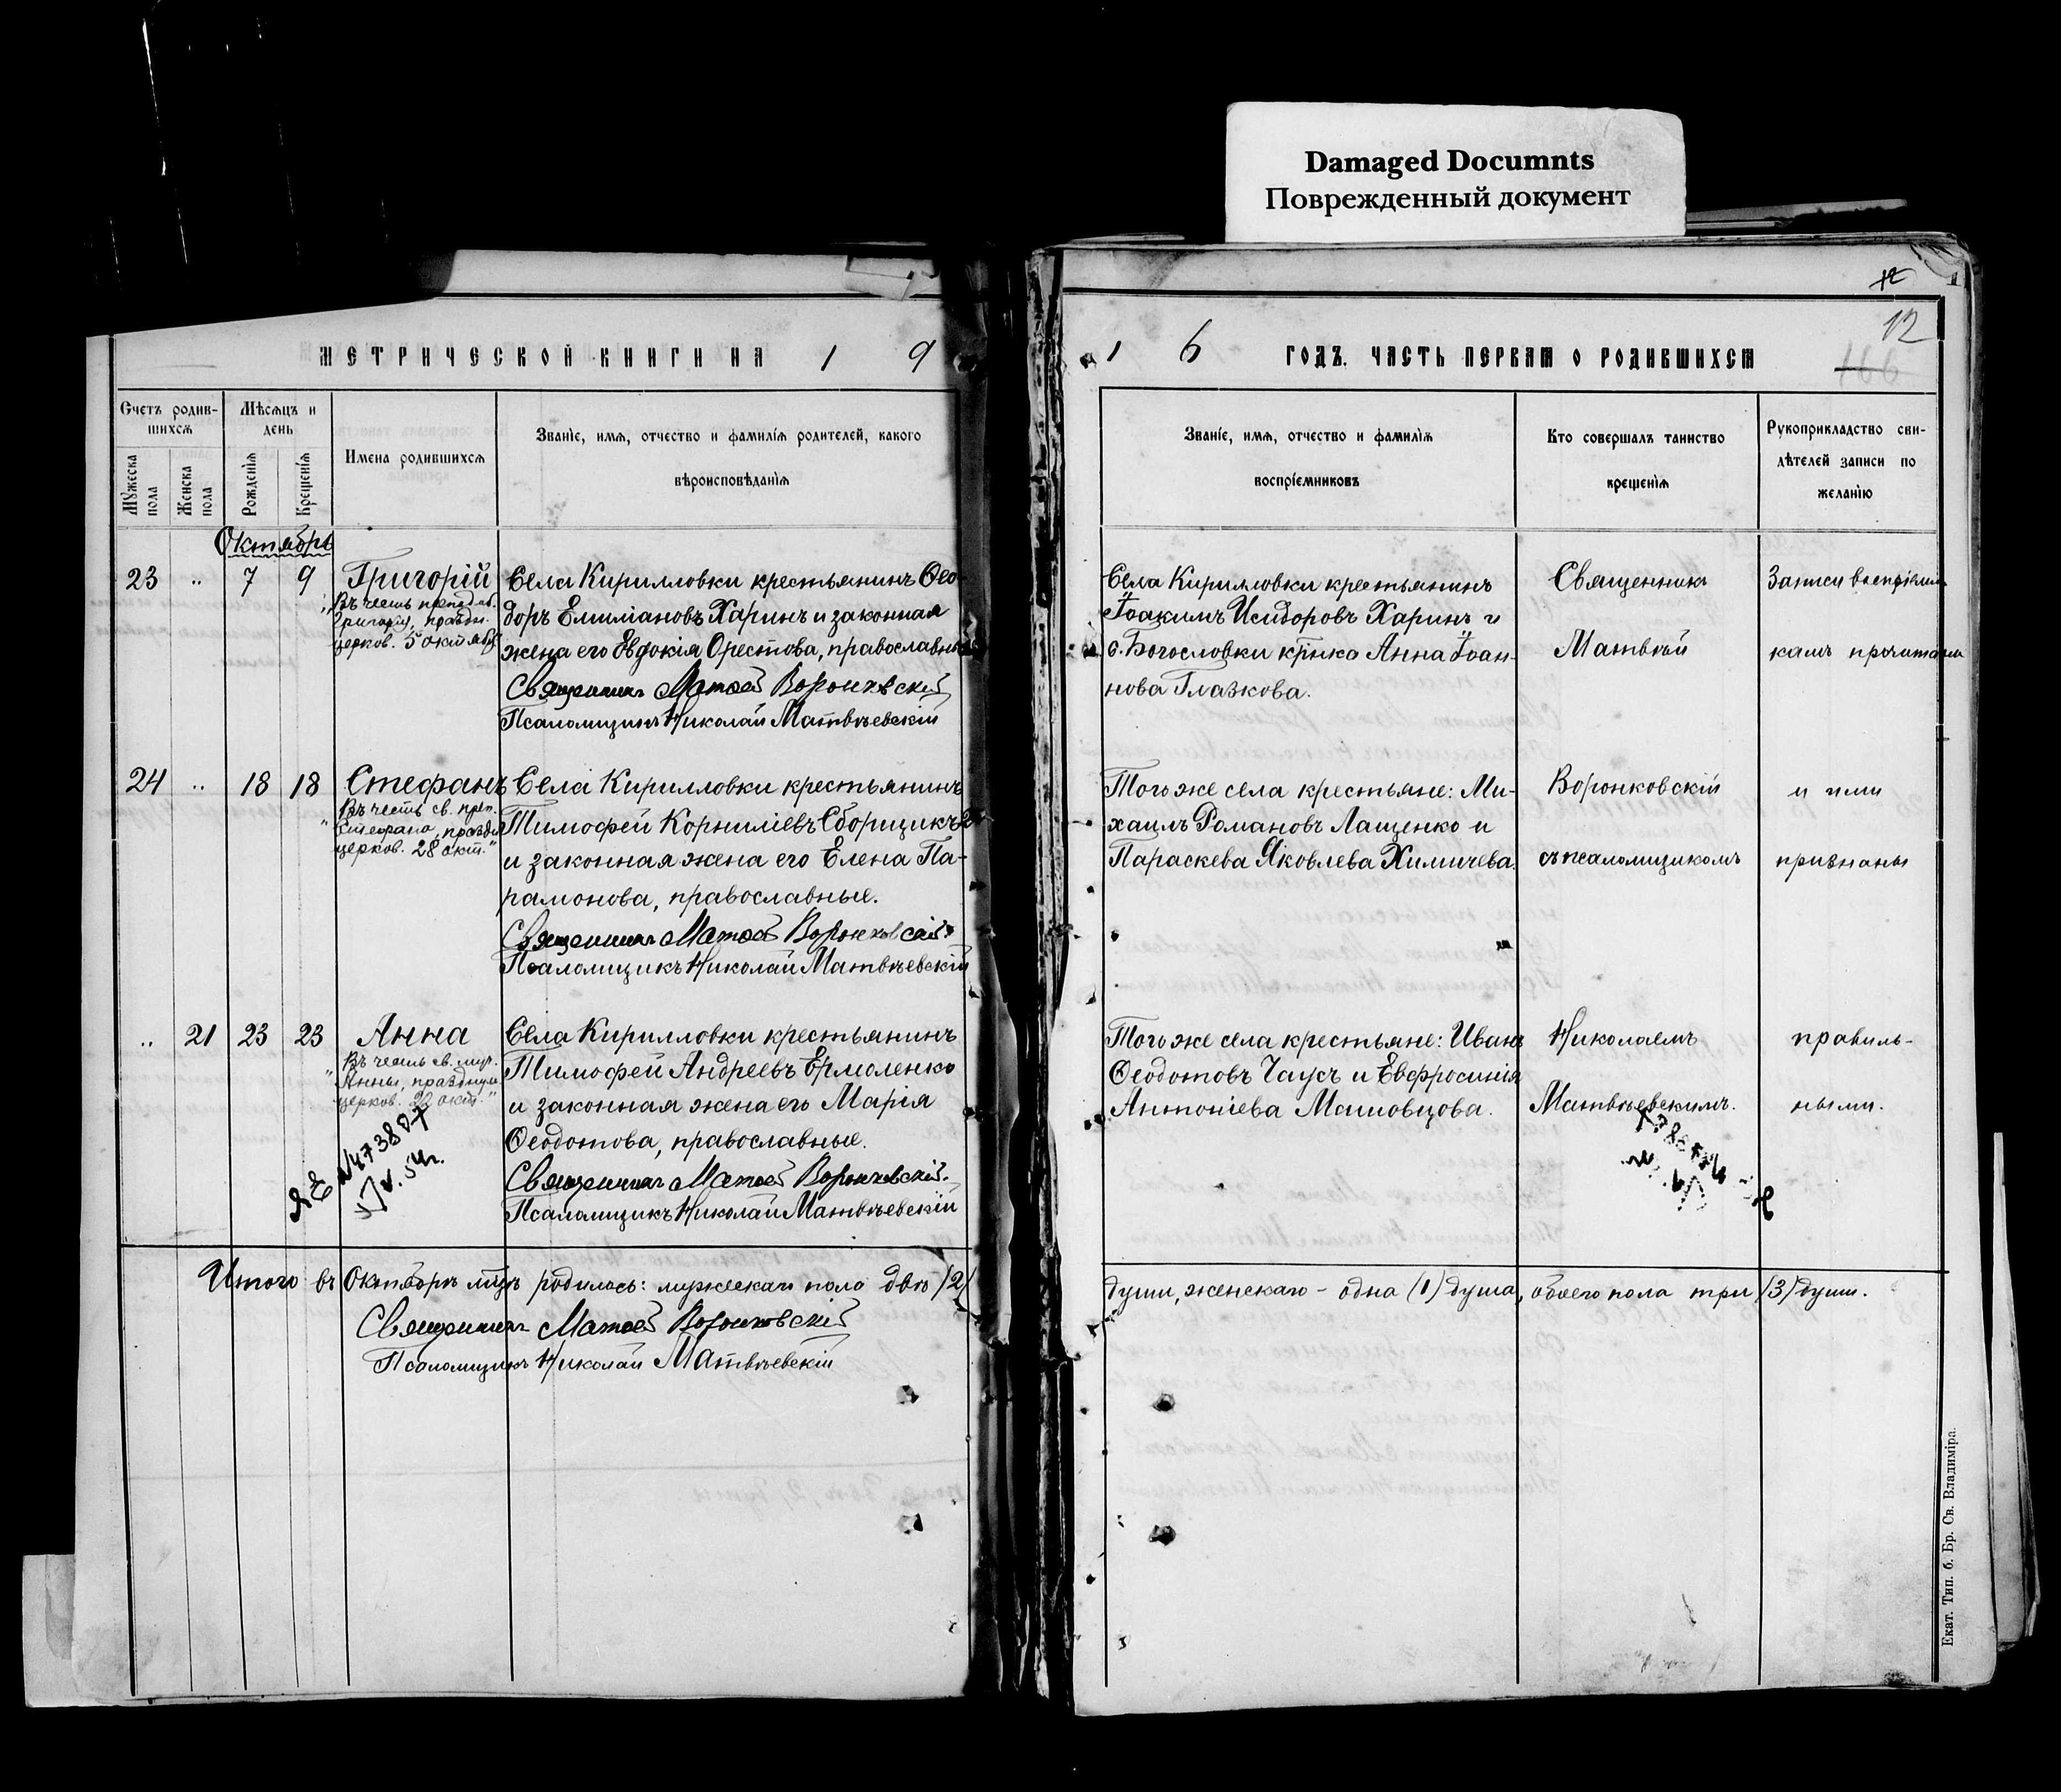 Damaged Documnts
Поврежденный документ
12
12
166
МЕТРИЧЕСКОЙ КНИГИ НА 1 9
1 6 ГОДЪ. ЧАСТЬ ПЕРВАЯ О РОДИВШИХСЯ
Счетъ родив-
шихся
Мужеска пола
Женска пола
Мѣсяцъ и
день
Рожденія
Крещенія
Имена родившихся
Званіе, имя, отчество и фамилія родителей, какого
вѣроисповѣданія
Званіе, имя, отчество и фамилія
воспріемниковъ
Кто совершалъ таинство
крещенія
Рукоприкладство сви-
дѣтелей записи по
желанію
Октябрь
23 " 7 9 Григорій
Въ честь преподоб.
Григорія, праздн.
церков. 5 октября
Села Кирилловки крестьянинъ Ѳео-
доръ Емиліановъ Харинъ и законная
жена его Евдокія Орестова, православные
Священникъ Матѳей Воронковскій
Псаломщикъ Николай Матвѣевскій
Села Кирилловки крестьянинъ
Іоакимъ Исидоровъ Харинъ и
с. Богословки крѣнка Анна Іоан-
нова Глазкова.
Священникъ
Матвѣй
Записи воспріемни-
камъ прочитаны
24 " 18 18 Стефанъ
Въ честь св. преп.
Стефана, праздн.
церков. 28 окт."
Села Кирилловки крестьянинъ
Тимофей Корниліевъ Сборщикъ
и законная жена его Елена Па-
рамонова, православные.
Священникъ Матѳей Воронковскій
Псаломщикъ Николай Матвѣевскій
Того же села крестьяне: Ми-
хаилъ Романовъ Лащенко и
Параскева Яковлева Химичева.
Воронковскій
съ псаломщикомъ
и ими
признаны
" 21 23 23 Анна
Въ честь св. муч.
"Анны, празднуем.
церков. 22 окт."
Села Кирилловки крестьянинъ
Тимофей Андреевъ Ермоленко
и законная жена его Марія
Ѳеодотова, православные.
Священникъ Матѳей Воронковскій.
Псаломщикъ Николай Матвѣевскій
Того же села крестьяне: Иванъ
Ѳеодотовъ Чаусъ и Евфросинія
Антоніева Машовцова.
Николаемъ
Матвѣевскимъ.
правиль-
ными.
ЯЕ №473807
Итого въ Октябрѣ мцѣ родилось: мужескаго пола двѣ (2)
души, женскаго - одна (1) душа, обоего пола три (3) души.
Священникъ Матѳей Воронковскій
Псаломщикъ Николай Матвѣевскій
Екат. Тип. б. Бр. Св. Владиміра.